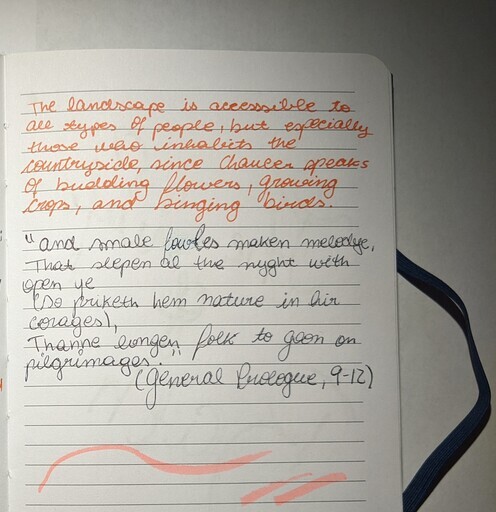 The landscape is accesssible to
all types of people, but especially
those who inhabits the
countryside, since Chaucer speaks
of budding flowers, growing
crops, and singing birds.
"And smale fowles maken melodye,
That slepen al the nyght with
open ye
(So priketh hem nature in hir
corages),
Thanne longen folk to goon on
pilgrimages."
(General Prologue, 9-12)